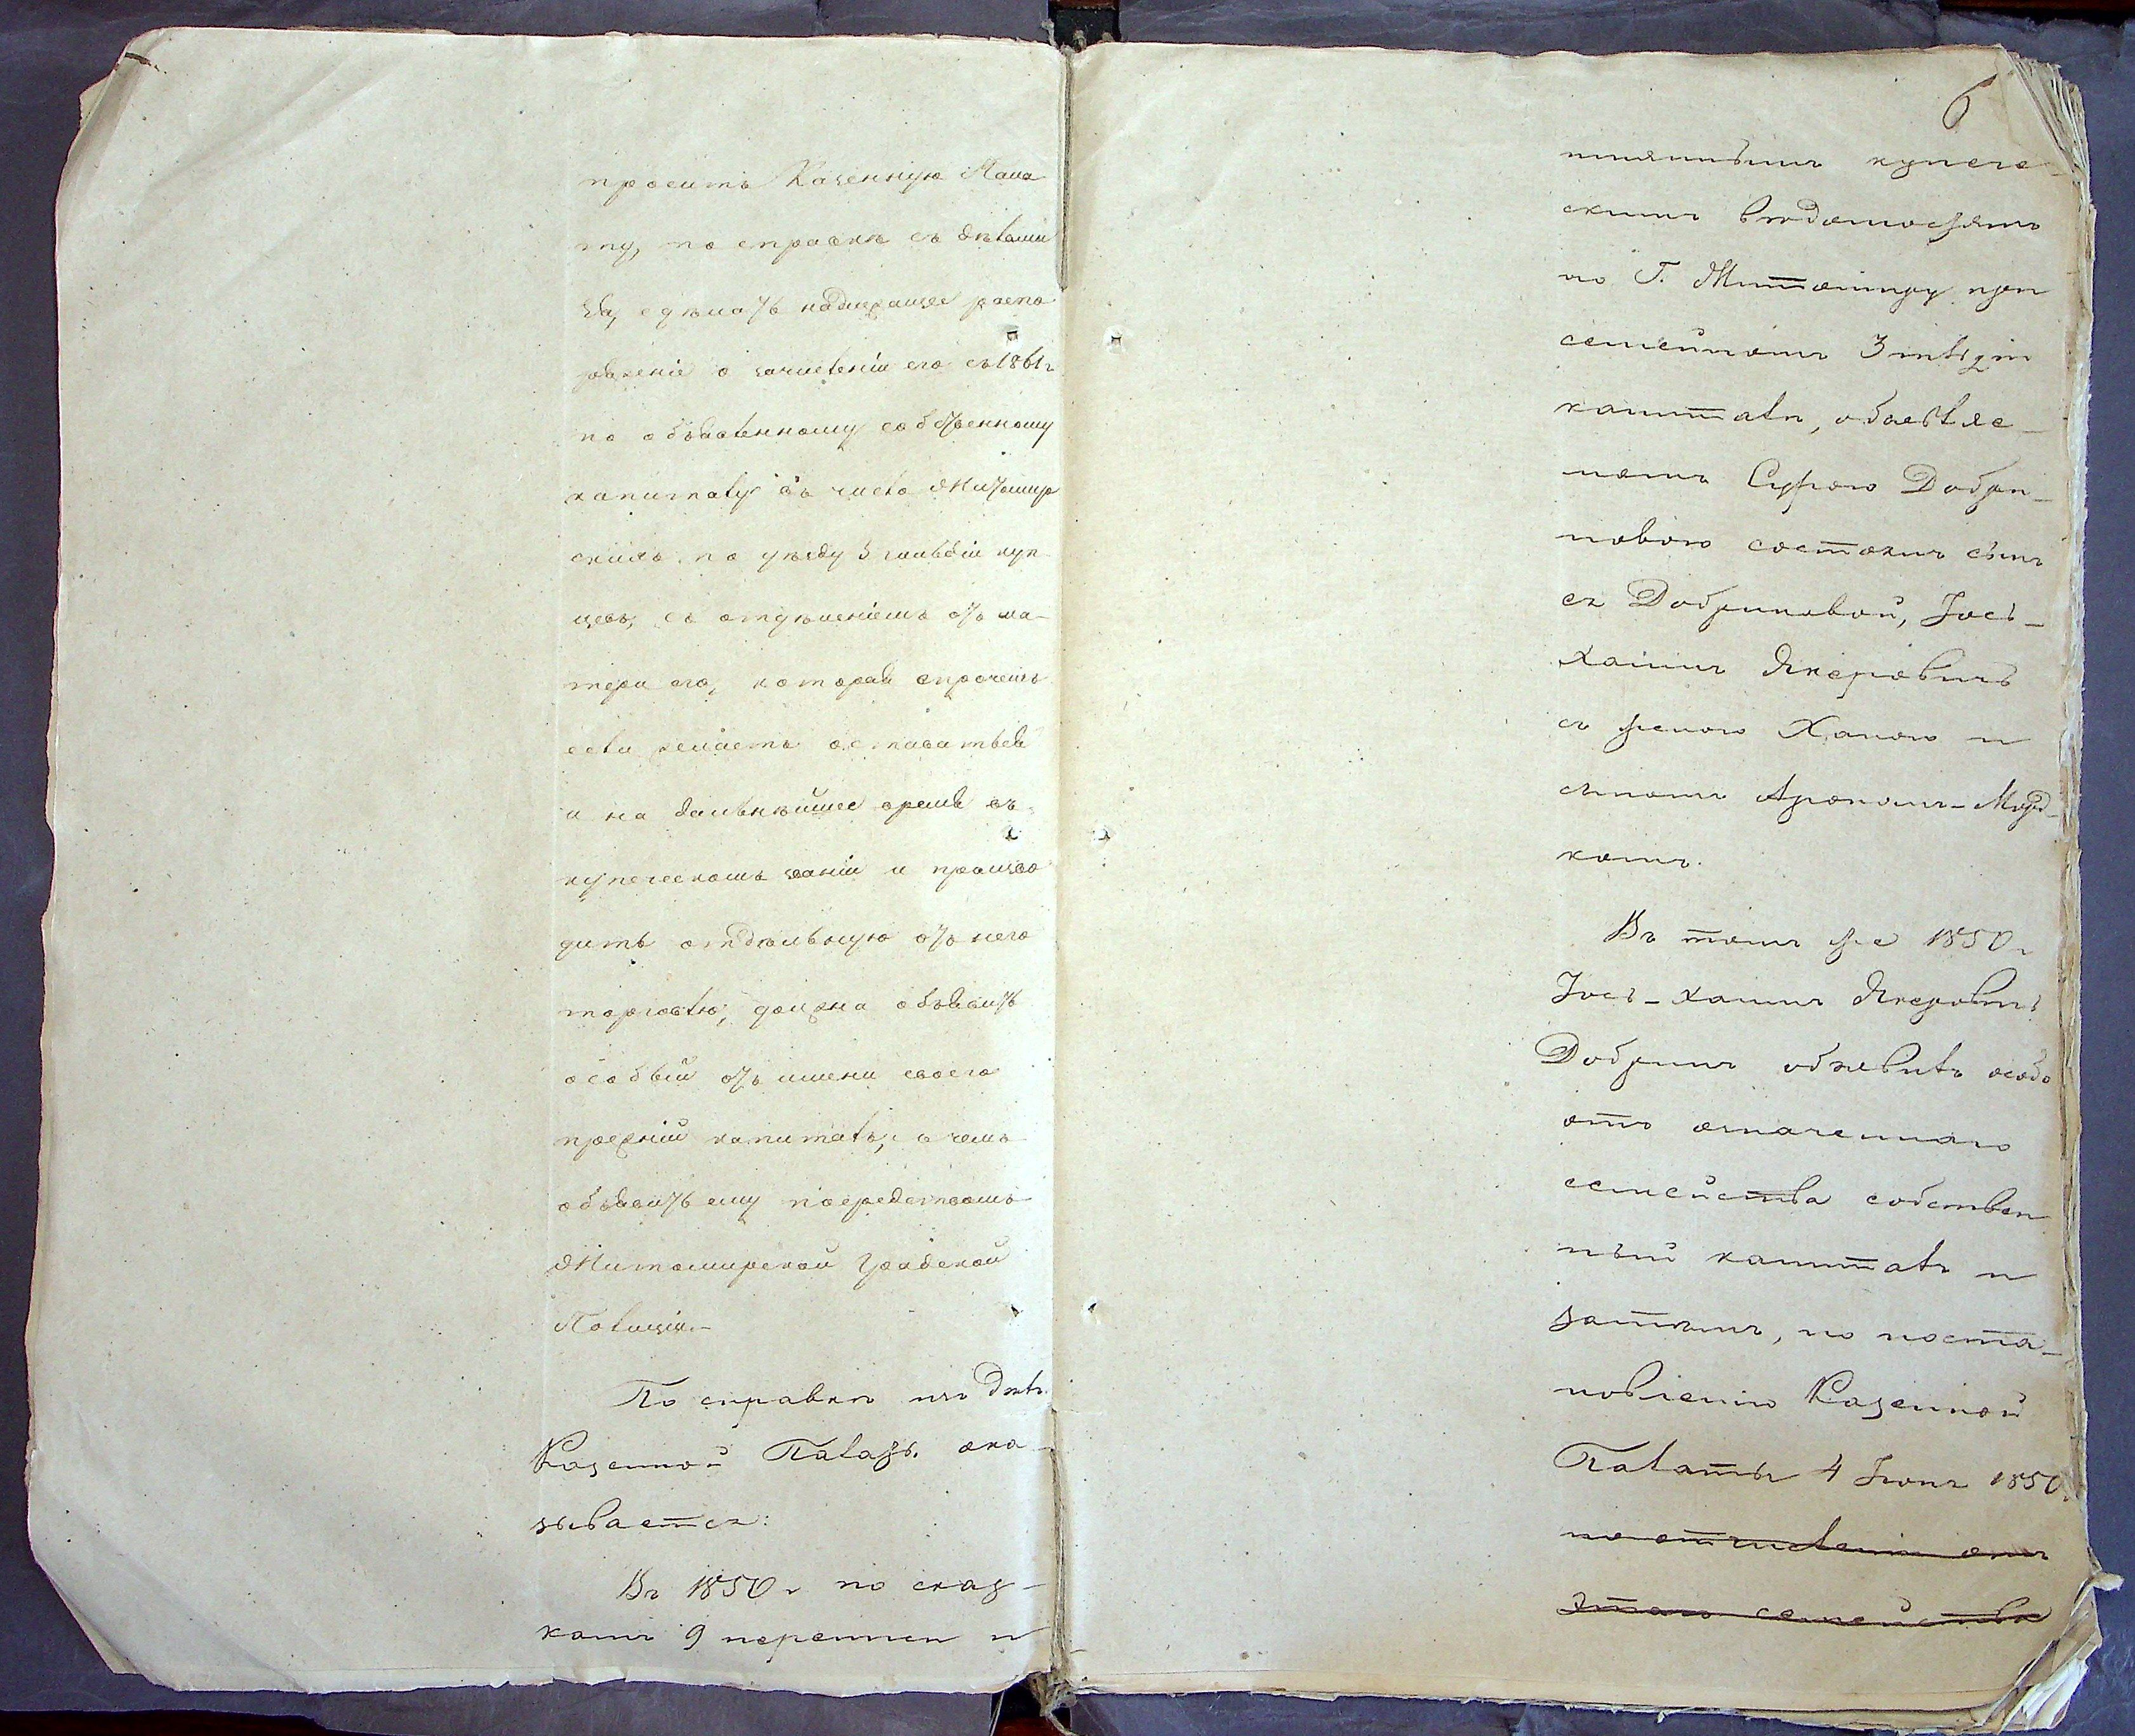 проситъ Казенную Пала
ту, по справкѣ съ дѣлами
ея, сдѣлать надлежащее распо
ряженіе о зачисленіи его съ 1861 г.
по объявленному собственному
капиталу въ число Житомир
скихъ по уѣзду 3 гильдіи куп
цевъ, съ отдѣленіемъ отъ ма-
тери его, которая впрочемъ
если желаетъ оставаться
и на дальнѣйшее время въ
купеческомъ званіи и произво
дить отдѣльную отъ него
торговлю, должна объявить
особый отъ имени своего
прежній капиталъ, о чемъ
объявить ему посредствомъ
Житомирской Градской
Полиціи.-
По справкѣ изъ дѣлъ
Казенной Палаты ока-
зывается:
Въ 1850 г. по сказ-
камъ 9 переписи и
6
купече-
скимъ вѣдомостямъ
по Г. Житоміру при
семейномъ 3 гильдіи
капиталѣ, объявлен-
номъ Сурою Добри-
новою состоялъ сынъ
ея Добриновой, Іось-
Хаимъ Янкеровичъ
съ женою Ханою и
сыномъ Арономъ-Морд-
комъ.
Въ томъ же 1850 г.
Іось-Хаимъ Янкеровичъ
Добринъ объявилъ особо
отъ означеннаго
семейства собствен
ный капиталъ и
затѣмъ, по поста-
новленію Казенной
Палаты 4 Іюня 1850 г.
по отчисленіи отъ
этого семейства